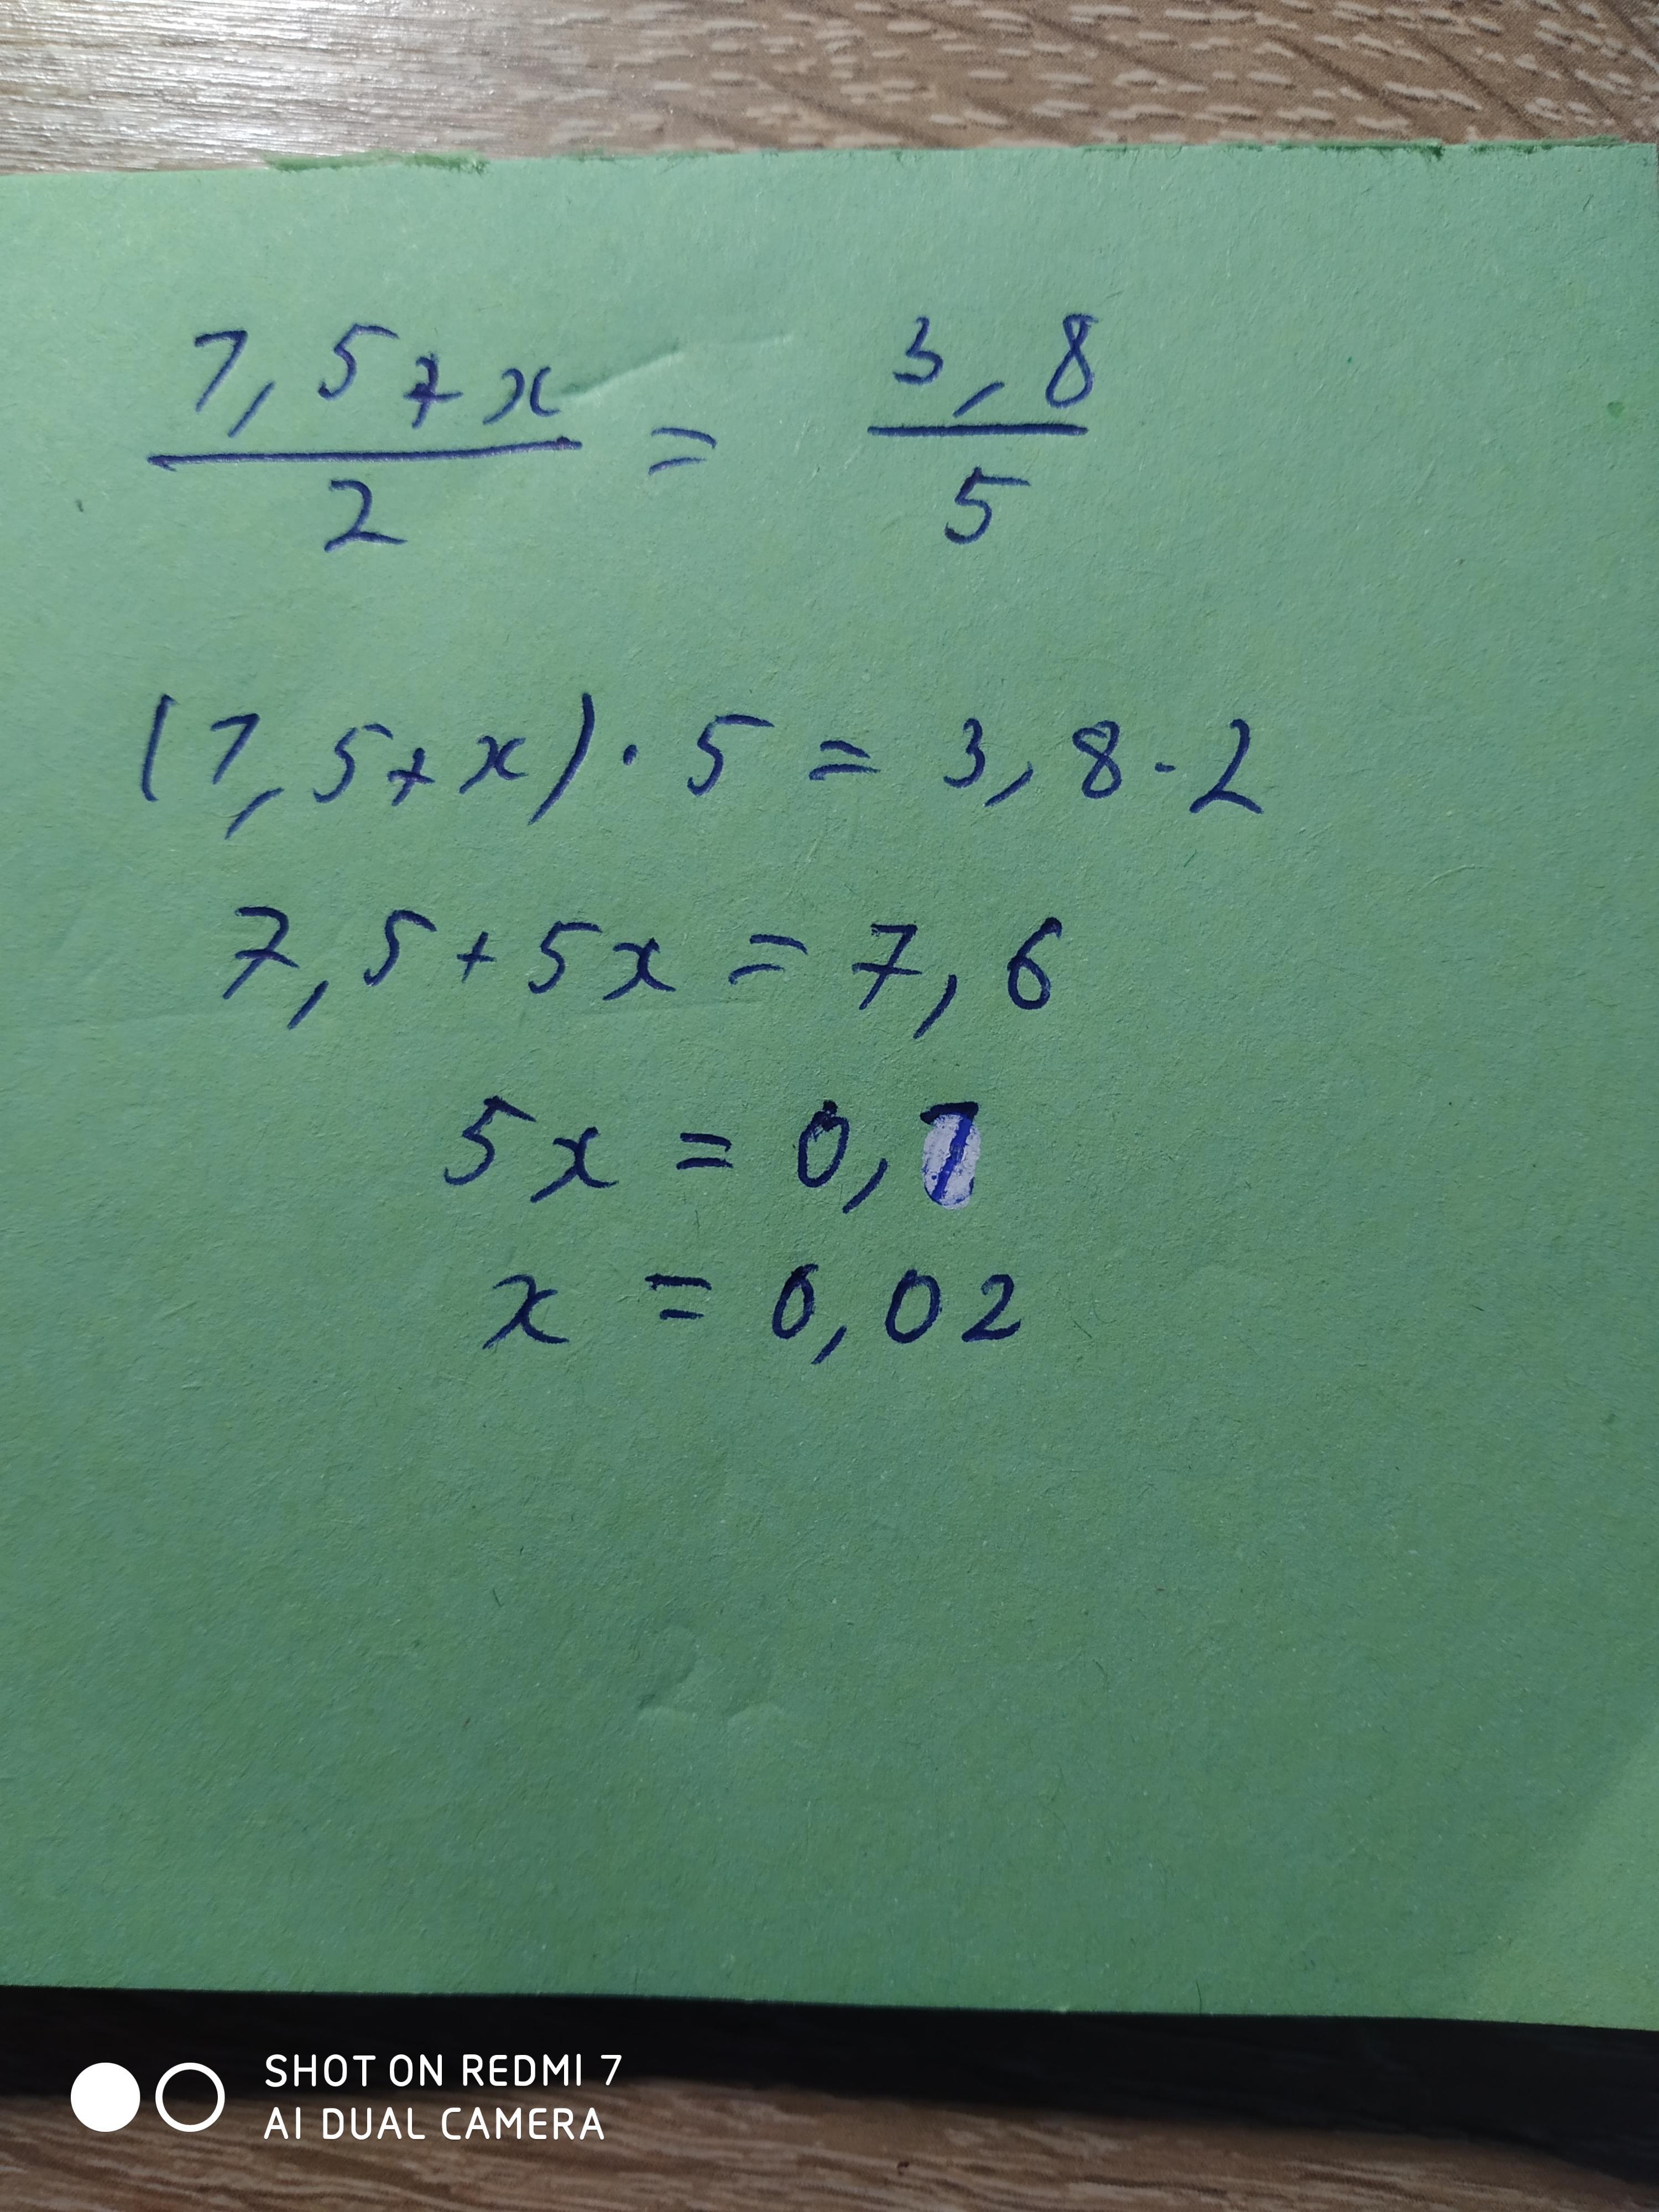 (1,5+x)/2 = 3,8/5
(1,5+x)·5 = 3,8·2
7,5+5x = 7,6
5x = 0,1
x = 0,02
SHOT ON REDMI 7
AI DUAL CAMERA